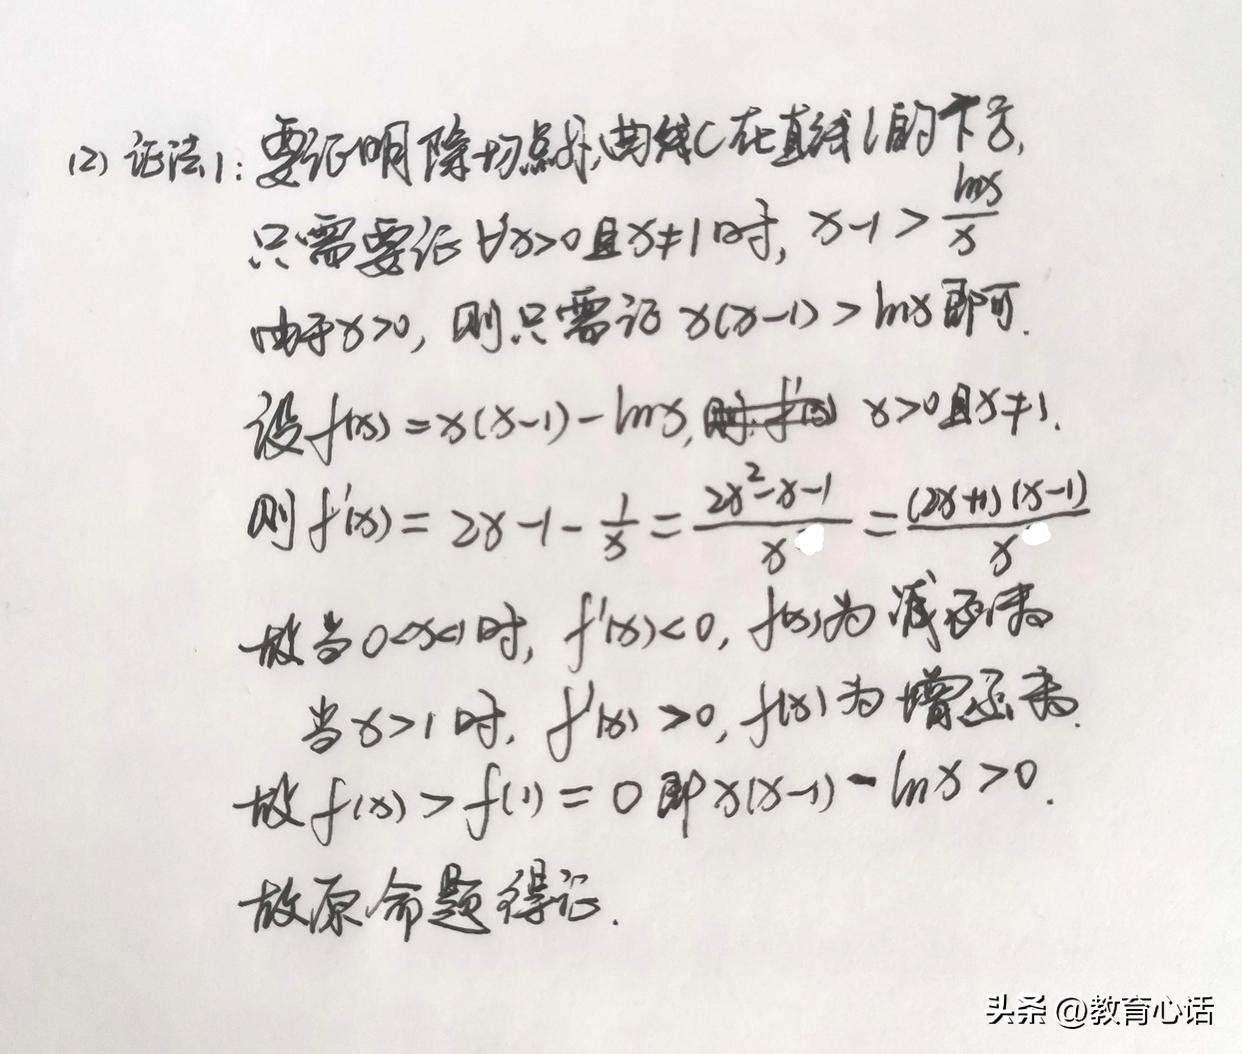 (2) 证法1: 要证明除切点外,曲线C在直线l的下方,
只需要证 ∀x>0且x≠1时, x-1 > lnx/x
由于x>0, 则只需证 x(x-1) > lnx 即可.
设 f(x) = x(x-1) - lnx, x>0且x≠1.
则 f'(x) = 2x-1-1/x = (2x²-x-1)/x = (2x+1)(x-1)/x
故当0<x<1时, f'(x)<0, f(x)为减函数
当x>1时, f'(x)>0, f(x)为增函数.
故 f(x) > f(1) = 0 即 x(x-1) - lnx > 0.
故原命题得证.
头条 @教育心话